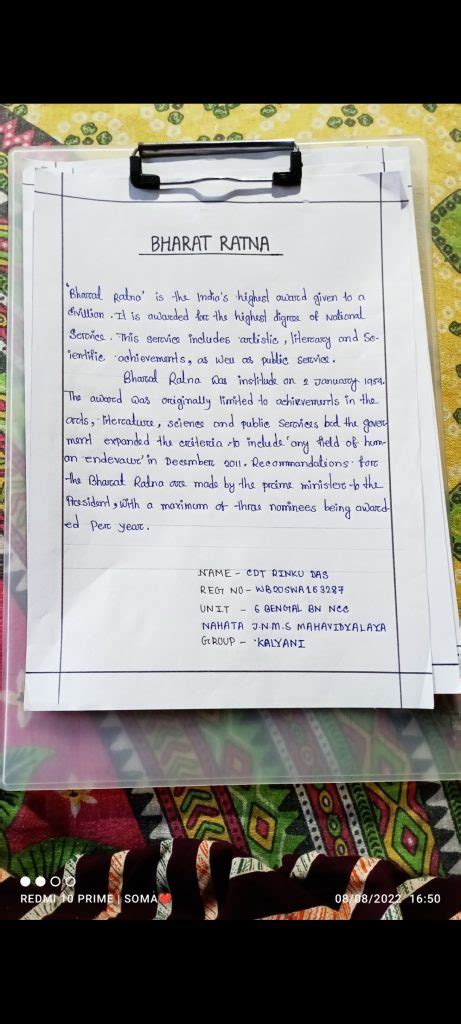 BHARAT RATNA
'Bharat Ratna' is the India's highest award given to a
Civillion. It is awarded for the highest digree of National
Service. This service includes artistic, literary and Sc-
ientific achievements, as well as public service.
Bharat Ratna was institude on 2 January 1954.
The award was originally limited to achievements in the
arts, literature, science and public services but the gover
ment expanded the criteria to include 'any field of hum-
an endevour' in December 2011. Recommandations for
the Bharat Ratna are made by the prime minister to the
President, with a maximum of three nominees being award-
ed Per year.
NAME - CDT RINKU DAS
REGT NO - WB20SWA163287
UNIT - 6 BENGAL BN NCC
NAHATA J.N.M.S MAHAVIDYALAYA
GROUP - 'KALYANI
REDMI 10 PRIME | SOMA❤
08/08/2022 16:50